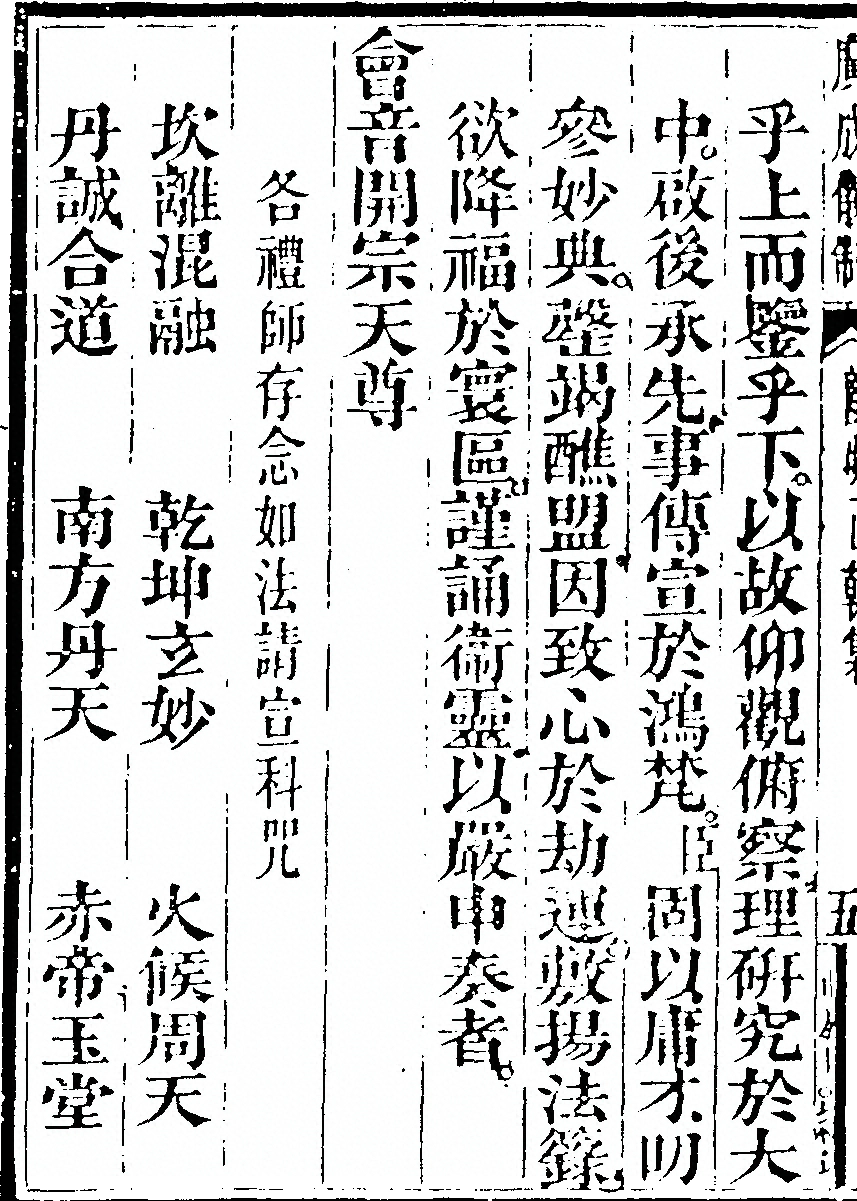 乎上而鑒乎下。以故仰觀俯察。理研究於大
中。啟後承先。事傳宣於鴻梵。臣固以庸才。叨
參妙典。罄竭醮盟。因致心於劫運。敷揚法籙。
欲降福於寰區。謹誦衛靈。以嚴申奏者。
會音開宗天尊
各禮師存念如法請宣科咒
坎離混融 乾坤玄妙 火候周天
丹誠合道 南方丹天 赤帝玉堂